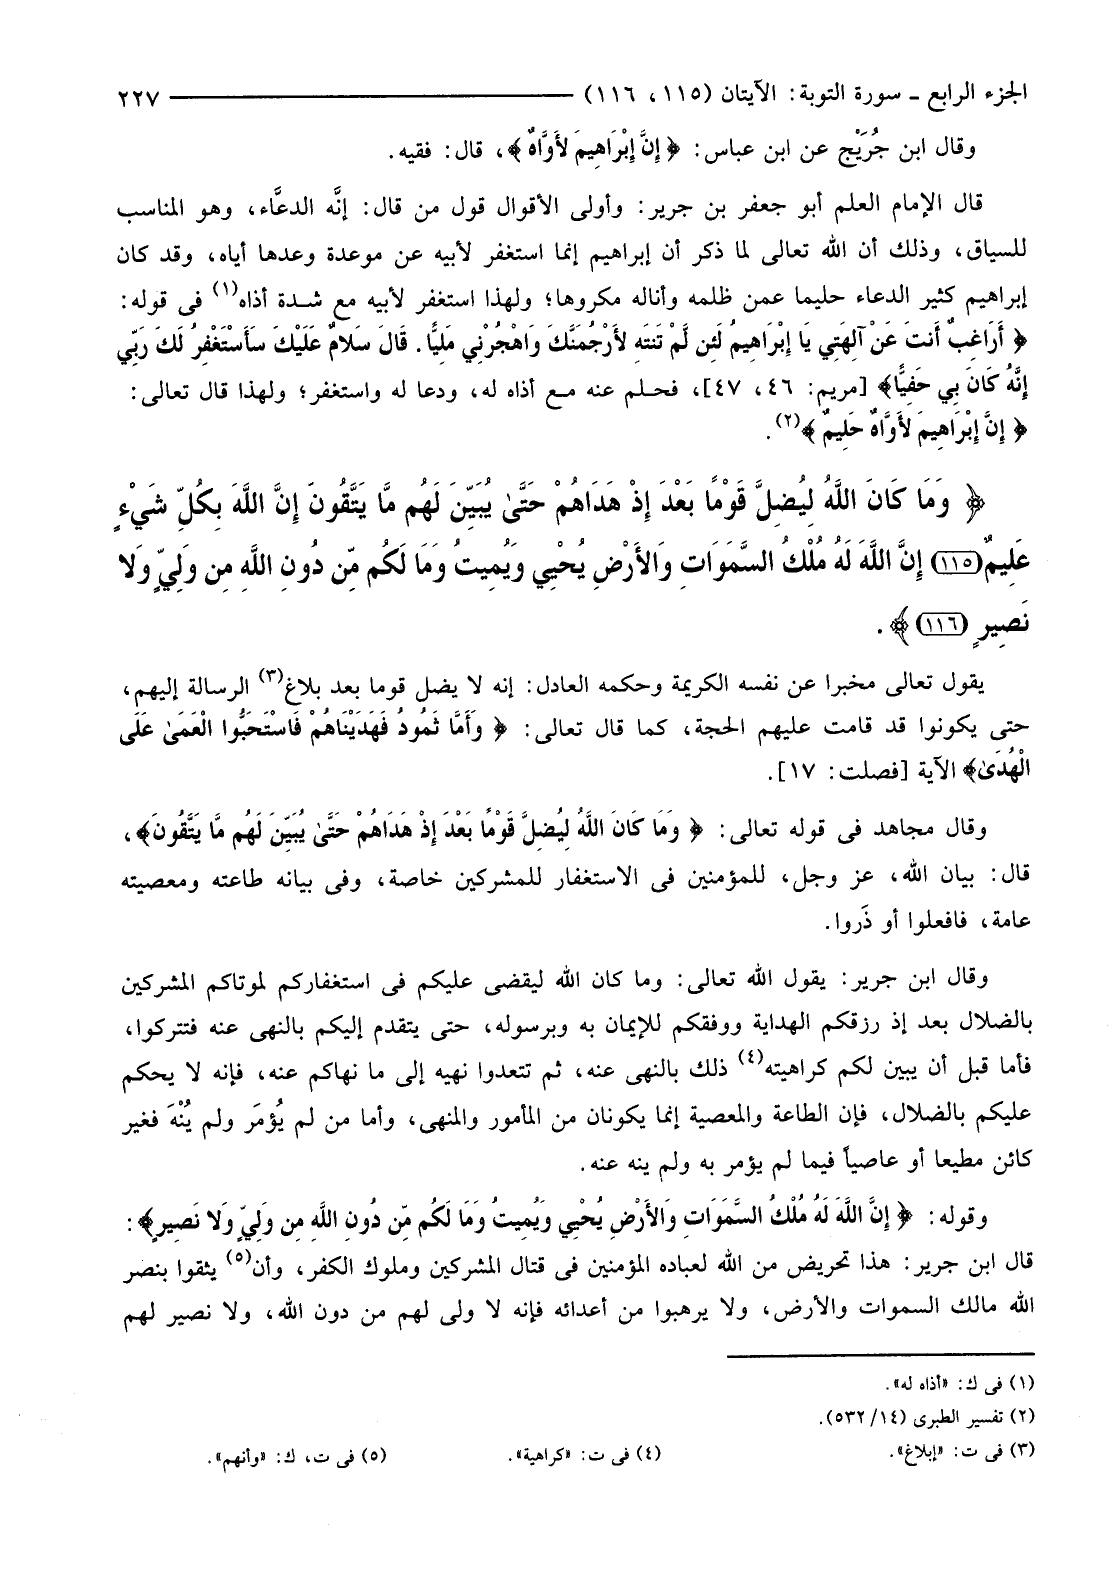 الجزء الرابع ـ سورة التوبة: الآيتان (١١٥، ١١٦) ٢٢٧
وقال ابن جُرَيْج عن ابن عباس: ﴿ إِنَّ إِبْرَاهِيمَ لأَوَّاهٌ ﴾، قال: فقيه.
قال الإمام العلم أبو جعفر بن جرير: وأولى الأقوال قول من قال: إنَّه الدعَّاء، وهو المناسب
للسياق، وذلك أن الله تعالى لما ذكر أن إبراهيم إنما استغفر لأبيه عن موعدة وعدها أياه، وقد كان
إبراهيم كثير الدعاء حليما عمن ظلمه وأناله مكروها؛ ولهذا استغفر لأبيه مع شدة أذاه(١) فى قوله:
﴿ أَرَاغِبٌ أَنتَ عَنْ آلِهَتِي يَا إِبْرَاهِيمُ لَئِن لَّمْ تَنتَهِ لأَرْجُمَنَّكَ وَاهْجُرْنِي مَلِيًّا. قَالَ سَلامٌ عَلَيْكَ سَأَسْتَغْفِرُ لَكَ رَبِّي
إِنَّهُ كَانَ بِي حَفِيًّا﴾ [مريم: ٤٦، ٤٧]، فحلم عنه مع أذاه له، ودعا له واستغفر؛ ولهذا قال تعالى:
﴿ إِنَّ إِبْرَاهِيمَ لأَوَّاهٌ حَلِيمٌ ﴾(٢).
﴿ وَمَا كَانَ اللَّهُ لِيُضِلَّ قَوْمًا بَعْدَ إِذْ هَدَاهُمْ حَتَّىٰ يُبَيِّنَ لَهُم مَّا يَتَّقُونَ إِنَّ اللَّهَ بِكُلِّ شَيْءٍ
عَلِيمٌ(١١٥) إِنَّ اللَّهَ لَهُ مُلْكُ السَّمَوَاتِ وَالأَرْضِ يُحْيِي وَيُمِيتُ وَمَا لَكُم مِّن دُونِ اللَّهِ مِن وَلِيٍّ وَلا
نَصِيرٍ (١١٦)﴾ .
يقول تعالى مخبرا عن نفسه الكريمة وحكمه العادل: إنه لا يضل قوما بعد بلاغ(٣) الرسالة إليهم،
حتى يكونوا قد قامت عليهم الحجة، كما قال تعالى: ﴿ وَأَمَّا ثَمُودُ فَهَدَيْنَاهُمْ فَاسْتَحَبُّوا الْعَمَىٰ عَلَى
الْهُدَىٰ﴾ الآية [فصلت: ١٧].
وقال مجاهد فى قوله تعالى: ﴿ وَمَا كَانَ اللَّهُ لِيُضِلَّ قَوْمًا بَعْدَ إِذْ هَدَاهُمْ حَتَّىٰ يُبَيِّنَ لَهُم مَّا يَتَّقُونَ﴾،
قال: بيان الله، عز وجل، للمؤمنين فى الاستغفار للمشركين خاصة، وفى بيانه طاعته ومعصيته
عامة، فافعلوا أو ذَروا.
وقال ابن جرير: يقول الله تعالى: وما كان الله ليقضى عليكم فى استغفاركم لموتاكم المشركين
بالضلال بعد إذ رزقكم الهداية ووفقكم للإيمان به وبرسوله، حتى يتقدم إليكم بالنهى عنه فتتركوا،
فأما قبل أن يبين لكم كراهيته(٤) ذلك بالنهى عنه، ثم تتعدوا نهيه إلى ما نهاكم عنه، فإنه لا يحكم
عليكم بالضلال، فإن الطاعة والمعصية إنما يكونان من المأمور والمنهى، وأما من لم يُؤمَر ولم يُنْهَ فغير
كائن مطيعا أو عاصياً فيما لم يؤمر به ولم ينه عنه.
وقوله: ﴿ إِنَّ اللَّهَ لَهُ مُلْكُ السَّمَوَاتِ وَالأَرْضِ يُحْيِي وَيُمِيتُ وَمَا لَكُم مِّن دُونِ اللَّهِ مِن وَلِيٍّ وَلا نَصِيرٍ﴾:
قال ابن جرير: هذا تحريض من الله لعباده المؤمنين فى قتال المشركين وملوك الكفر، وأن(٥) يثقوا بنصر
الله مالك السموات والأرض، ولا يرهبوا من أعدائه فإنه لا ولى لهم من دون الله، ولا نصير لهم
(١) فى ك: «أذاه له».
(٢) تفسير الطبرى (١٤/ ٥٣٢).
(٣) فى ت: «إبلاغ». (٤) فى ت: «كراهية». (٥) فى ت، ك: «وأنهم».